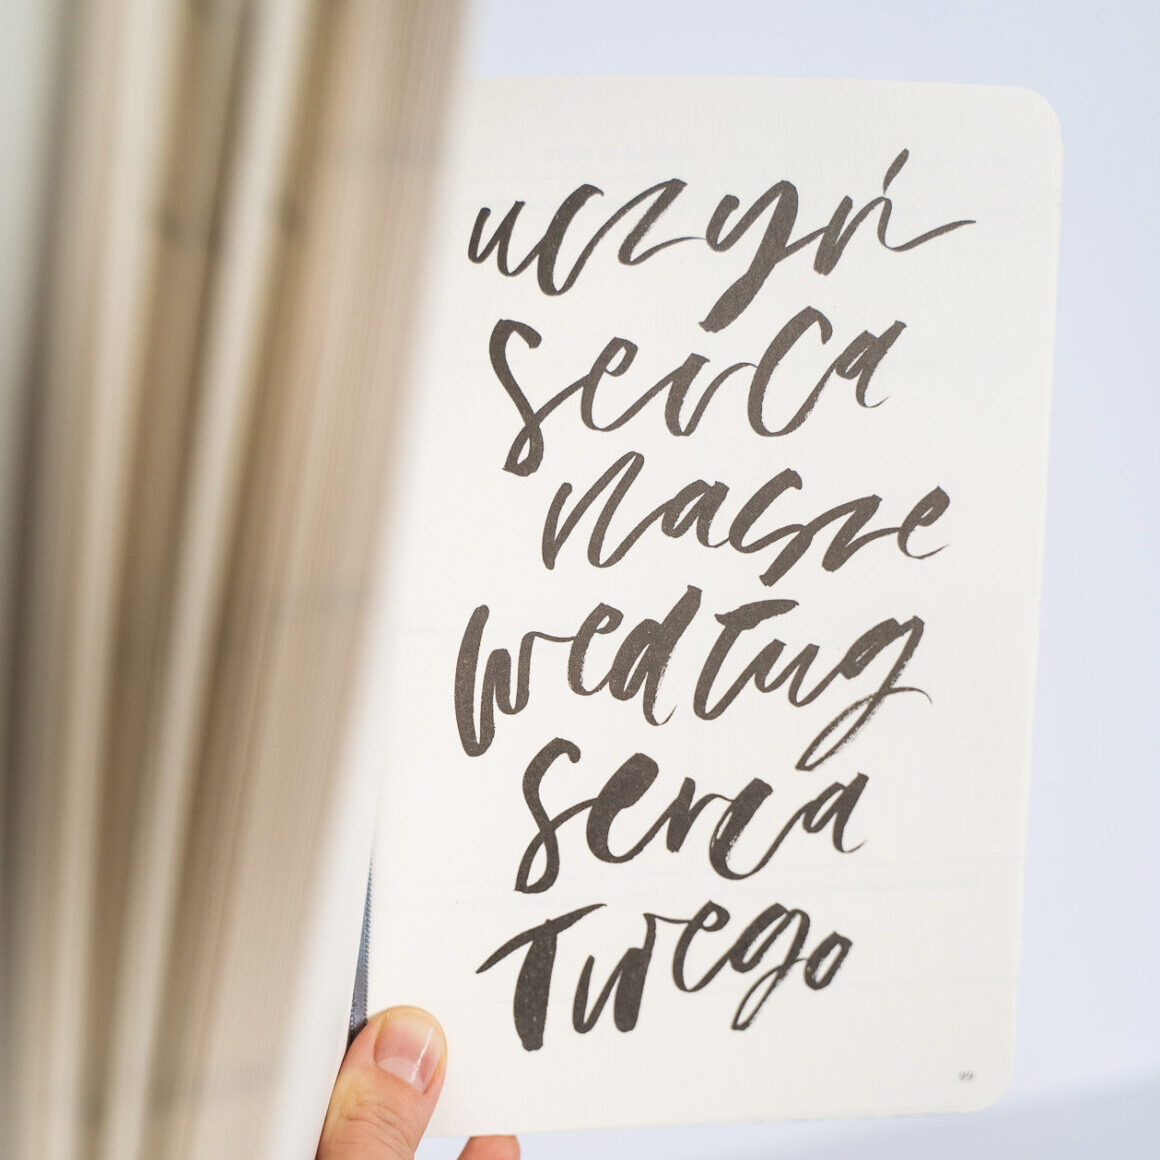 uczyń
serca
nasze
według
serca
Twego
99